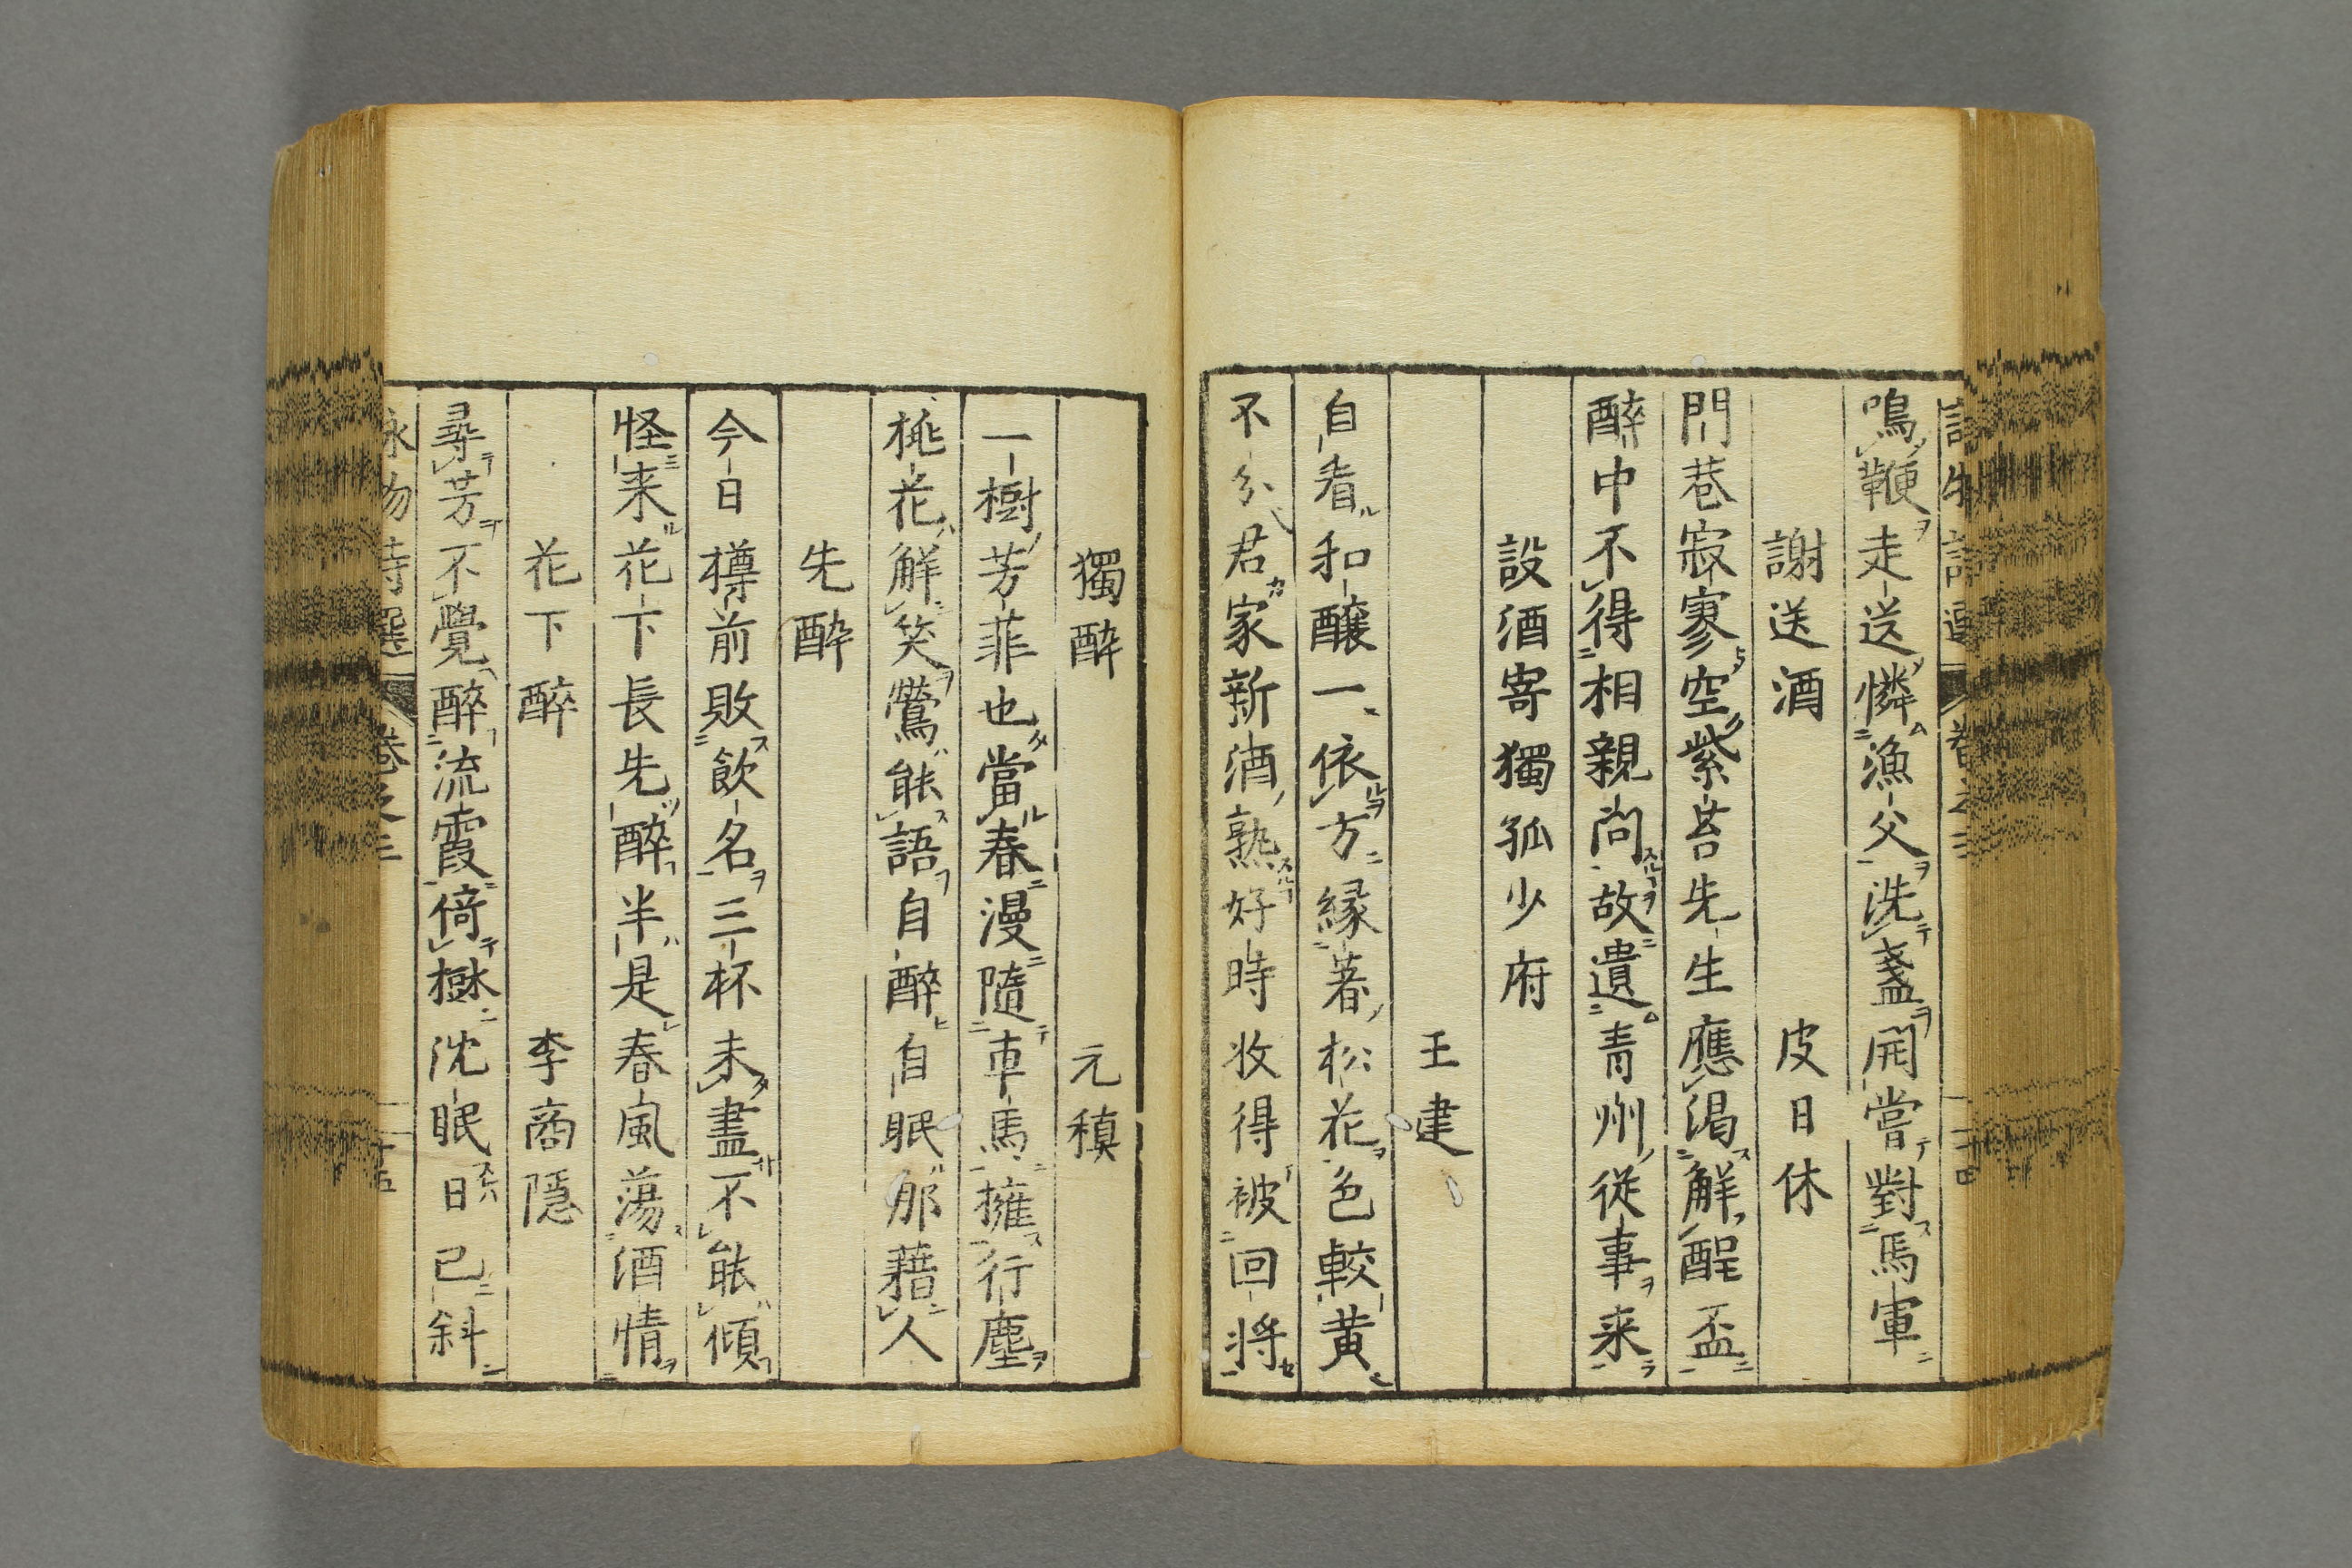 鳴鞭走送憐漁父洗盞開嘗對馬軍
謝送酒　皮日休
門巷寂寥空紫苔先生應渴解酲盃
醉中不得相親問故遺青州從事来
設酒寄獨孤少府
王建
自看和釀一依方縁著松花色較黄
不分君家新酒熟好時收得被回将
獨醉　元稹
一樹芳菲也當春漫隨車馬擁行塵
桃花解笑鶯能語自醉自眠那藉人
先醉
今日樽前敗飲名三杯未盡不能傾
怪来花下長先醉半是春風蕩酒情
花下醉　李商隱
尋芳不覺醉流霞倚樹沈眠日已斜
詠物詩選　卷之三　十五